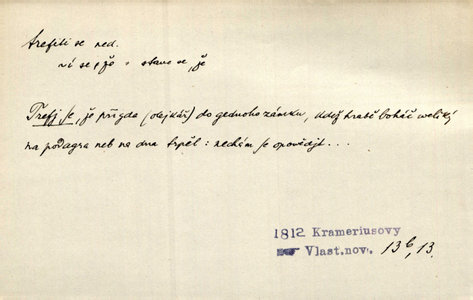 trefiti se ned.
ní se, že : stane se, že
Trefj se, že přigda (olejkář) do gednoho zámku, kdež hrabě boháč weliký
na podagra neb na dnu trpěl : nechám se opowědjt ...
1812 Krameriusovy
Vlast. nov. 13 b, 13.